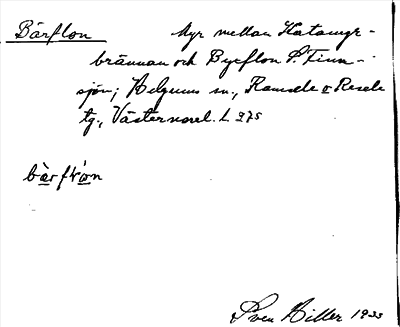 Bärflon Myr mellan Katamyr-
brännan och Byeflon S. Finn-
sjön; Helgums sn., Ramsele o Resele
tg., Västernorrl. L 275
bàrfłòn
Sven Hiller 1933